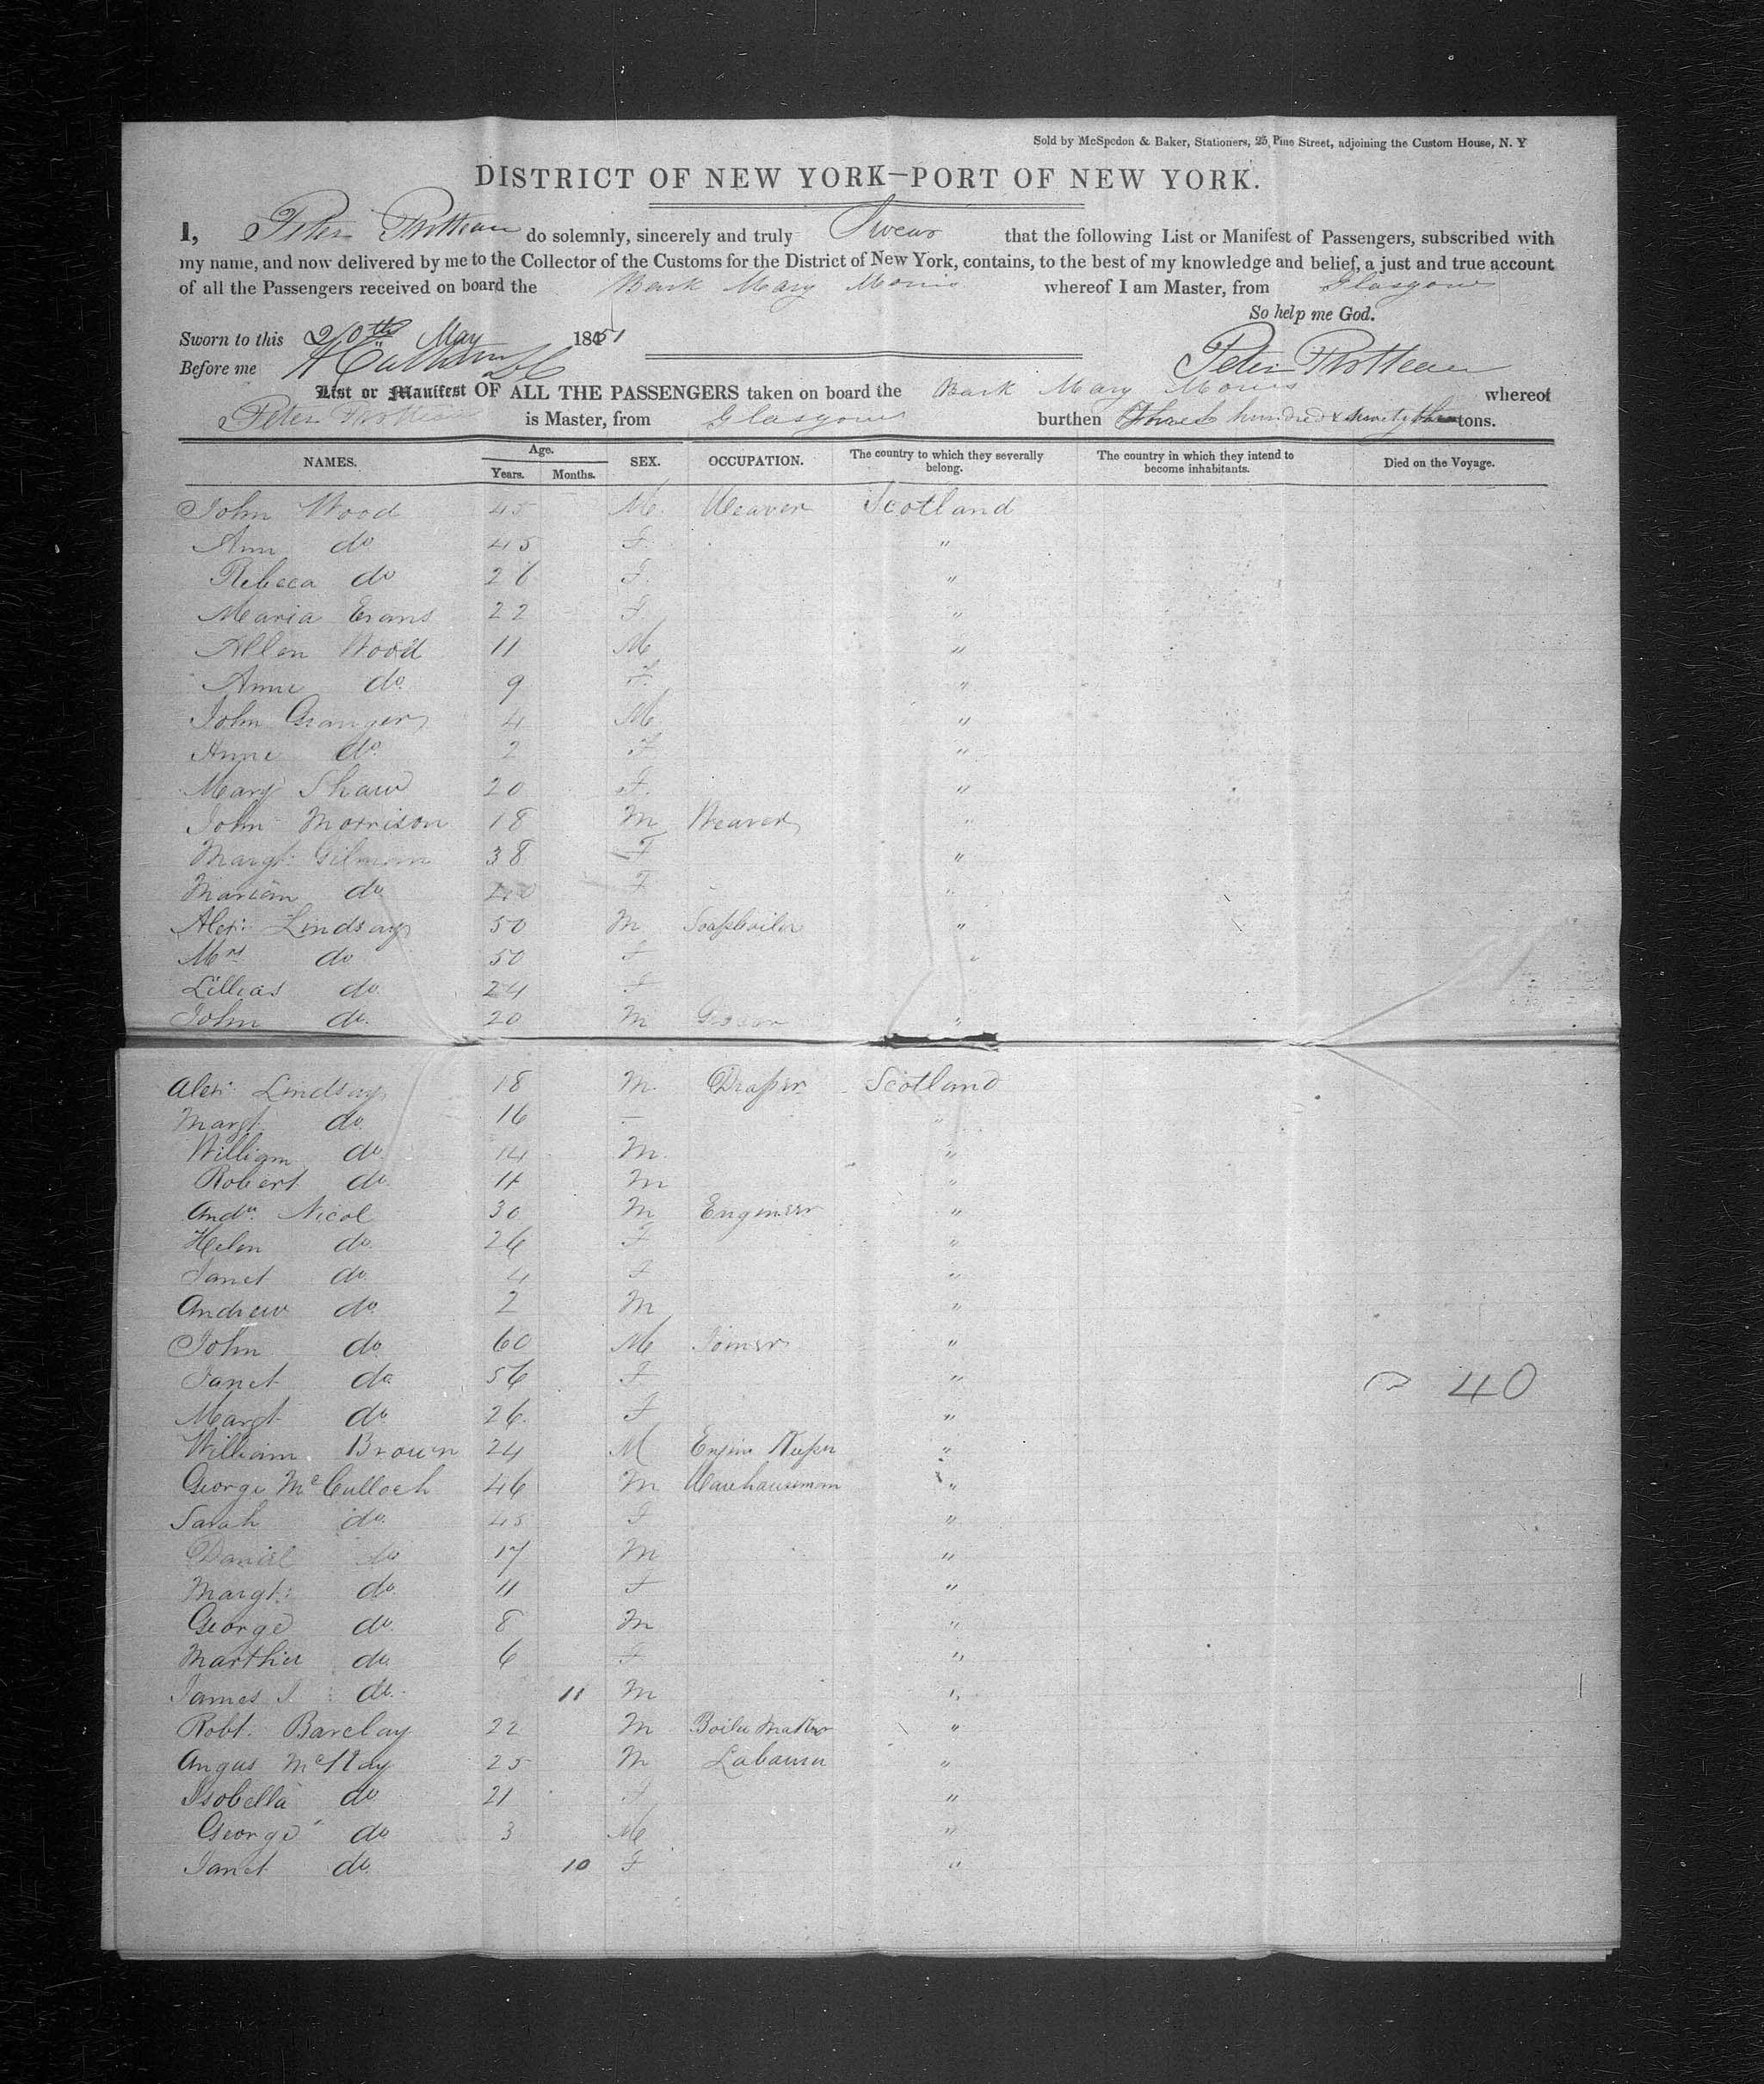 Sold by McSpedon & Baker, Stationers, 25 Pine Street, adjoining the Custom House, N. Y
DISTRICT OF NEW YORK—PORT OF NEW YORK.
I, Peter do solemnly, sincerely and truly Swear that the following List or Manifest of Passengers, subscribed with
my name, and now delivered by me to the Collector of the Customs for the District of New York, contains, to the best of my knowledge and belief, a just and true account
of all the Passengers received on board the Bark Mary Morris whereof I am Master, from Glasgow
So help me God.
Sworn to this 20th May 1851
Before me
Peter
List or Manifest OF ALL THE PASSENGERS taken on board the Bark Mary Morris whereof
Peter is Master, from Glasgow burthen Three hundred & tons.
NAMES. Age. Years. Months. SEX. OCCUPATION. The country to which they severally belong. The country in which they intend to become inhabitants. Died on the Voyage.
John Wood 45 M. Weaver Scotland
Ann do 45 F. "
Rebeca do 26 F. "
Maria Evans 22 F "
Allen Wood 11 M "
Anne do. 9 F. "
John Granger 4 M. "
Anne do. 2 F "
Mary Shaw 20 F. "
John Morrison 18 M Weaver "
Margt: Gilmour 38 F "
Marion do. F "
Alexr: Lindsay 50 M Soapboiler "
Mrs do 50 F "
Lillias do. 24 F "
John do. 20 M "
Alexr: Lindsay 18 M. Draper Scotland
Margt. do. 16 — "
William do. 14 M. "
Robert do. 11 M "
Andw. Nicol 30 M Engineer "
Helen do. 26 F "
Janet do. 4 F "
Andrew do. 2 M "
John do. 60 M Joiner "
Janet do 56 F "
40
Margt do. 26. F "
William Brown 24 M Engine Keeper "
George McCulloch 46 M Warehouseman "
Sarah do. 45 F "
Daniel do 17 M "
Margt: do. 11 F "
George do. 8 M "
Marthia do. 6 F "
James J. do. 11 M "
Robt. Barclay 22 M Boiler Maker "
Angus McKay 25 M Labourer "
Isobella do 21 F "
George do 3 M "
Janet do. 10 F "